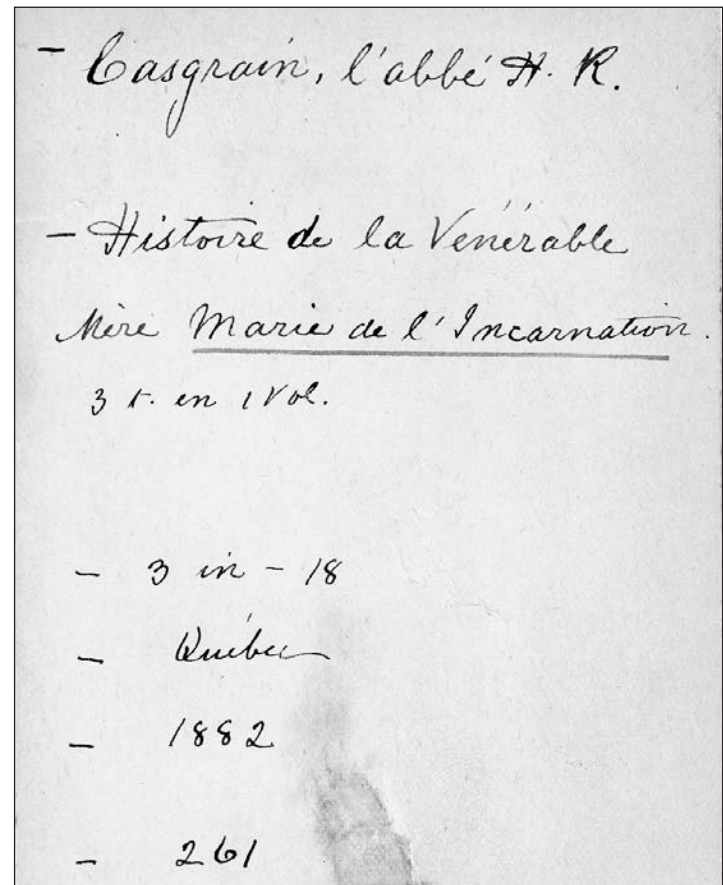 - Casgrain, l'abbé H. R.
- Histoire de la Vénérable
Mère Marie de l'Incarnation.
3 t. en 1 Vol.
- 3 in-18
- Québec
- 1882
- 261